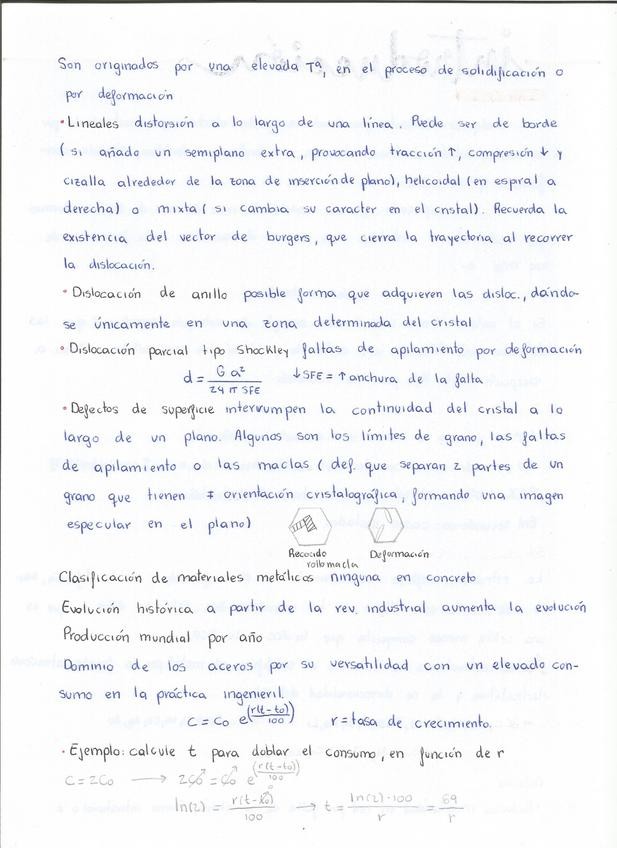 Son originados por una elevada Tª, en el proceso de solidificación o
por deformación
• Lineales distorsión a lo largo de una línea. Puede ser de borde
(si añado un semiplano extra, provocando tracción ↑, compresión ↓ y
cizalla alrededor de la zona de inserción de plano), helicoidal (en espiral a
derecha) o mixta (si cambia su caracter en el cristal). Recuerda la
existencia del vector de burgers, que cierra la trayectoria al recorrer
la dislocación.
• Dislocación de anillo posible forma que adquieren las disloc., dándo-
se únicamente en una zona determinada del cristal
• Dislocación parcial tipo Shockley faltas de apilamiento por deformación
d = G a² / 24 π SFE ↓SFE = ↑ anchura de la falta
• Defectos de superficie interrumpen la continuidad del cristal a lo
largo de un plano. Algunos son los límites de grano, las faltas
de apilamiento o las maclas (def. que separan 2 partes de un
grano que tienen ≠ orientación cristalográfica, formando una imagen
especular en el plano)
Recocido Deformación
rollo macla
Clasificación de materiales metálicos ninguna en concreto
Evolución histórica a partir de la rev. industrial aumenta la evolución
Producción mundial por año
Dominio de los aceros por su versatilidad con un elevado con-
sumo en la práctica ingenieril.
C = C₀ e^(r(t-t₀)/100) r = tasa de crecimiento.
• Ejemplo: calcule t para doblar el consumo, en función de r
C = 2C₀ → 2C₀ = C₀ e^(r(t-t₀)/100)
ln(2) = r(t-t₀)/100 → t = ln(2)·100/r = 69/r